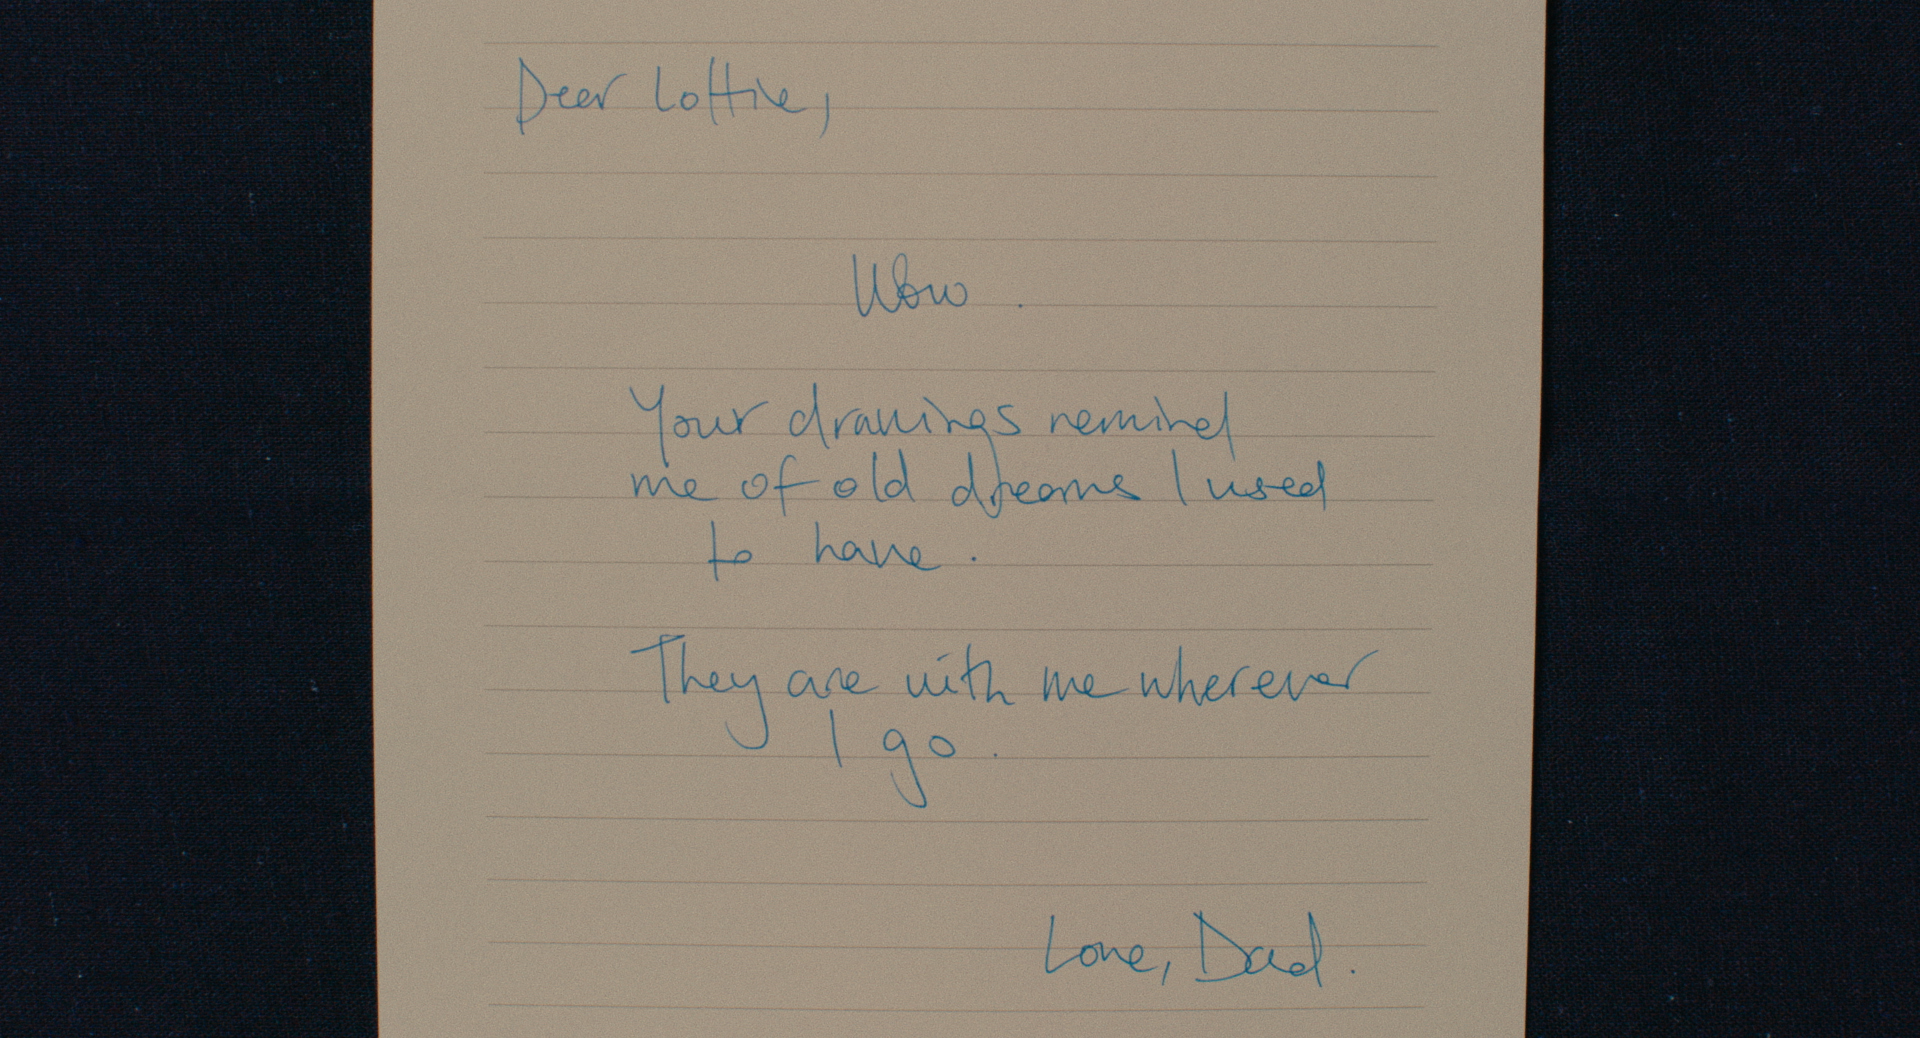 Dear Lottie,
Wow.
Your drawings remind
me of old dreams I used
to have.
They are with me wherever
I go.
Love, Dad.